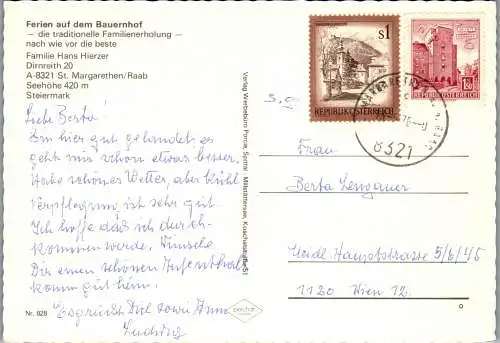 Ferien auf dem Bauernhof
– die traditionelle Familienerholung –
nach wie vor die beste
Familie Hans Hierzer
Dirnreith 20
A-8321 St. Margarethen/Raab
Seehöhe 420 m
Steiermark
Liebe Berta!
Bin hier gut gelandet, es
geht mir schon etwas besser.
Habe schönes Wetter, aber kühl
Verpflegung ist sehr gut.
Ich hoffe daß ich durch-
kommen werde. Wünsche
Dir einen schönen
komm gut heim.
Es grüßt Dich sowie
Ludwig
Nr. 828
Verlag Werbebüro
S1
REPUBLIK ÖSTERREICH
REPUBLIK ÖSTERREICH
8321
Frau
Berta Lengauer
Meidl. Hauptstrasse 5/6/45
1120 Wien 12.